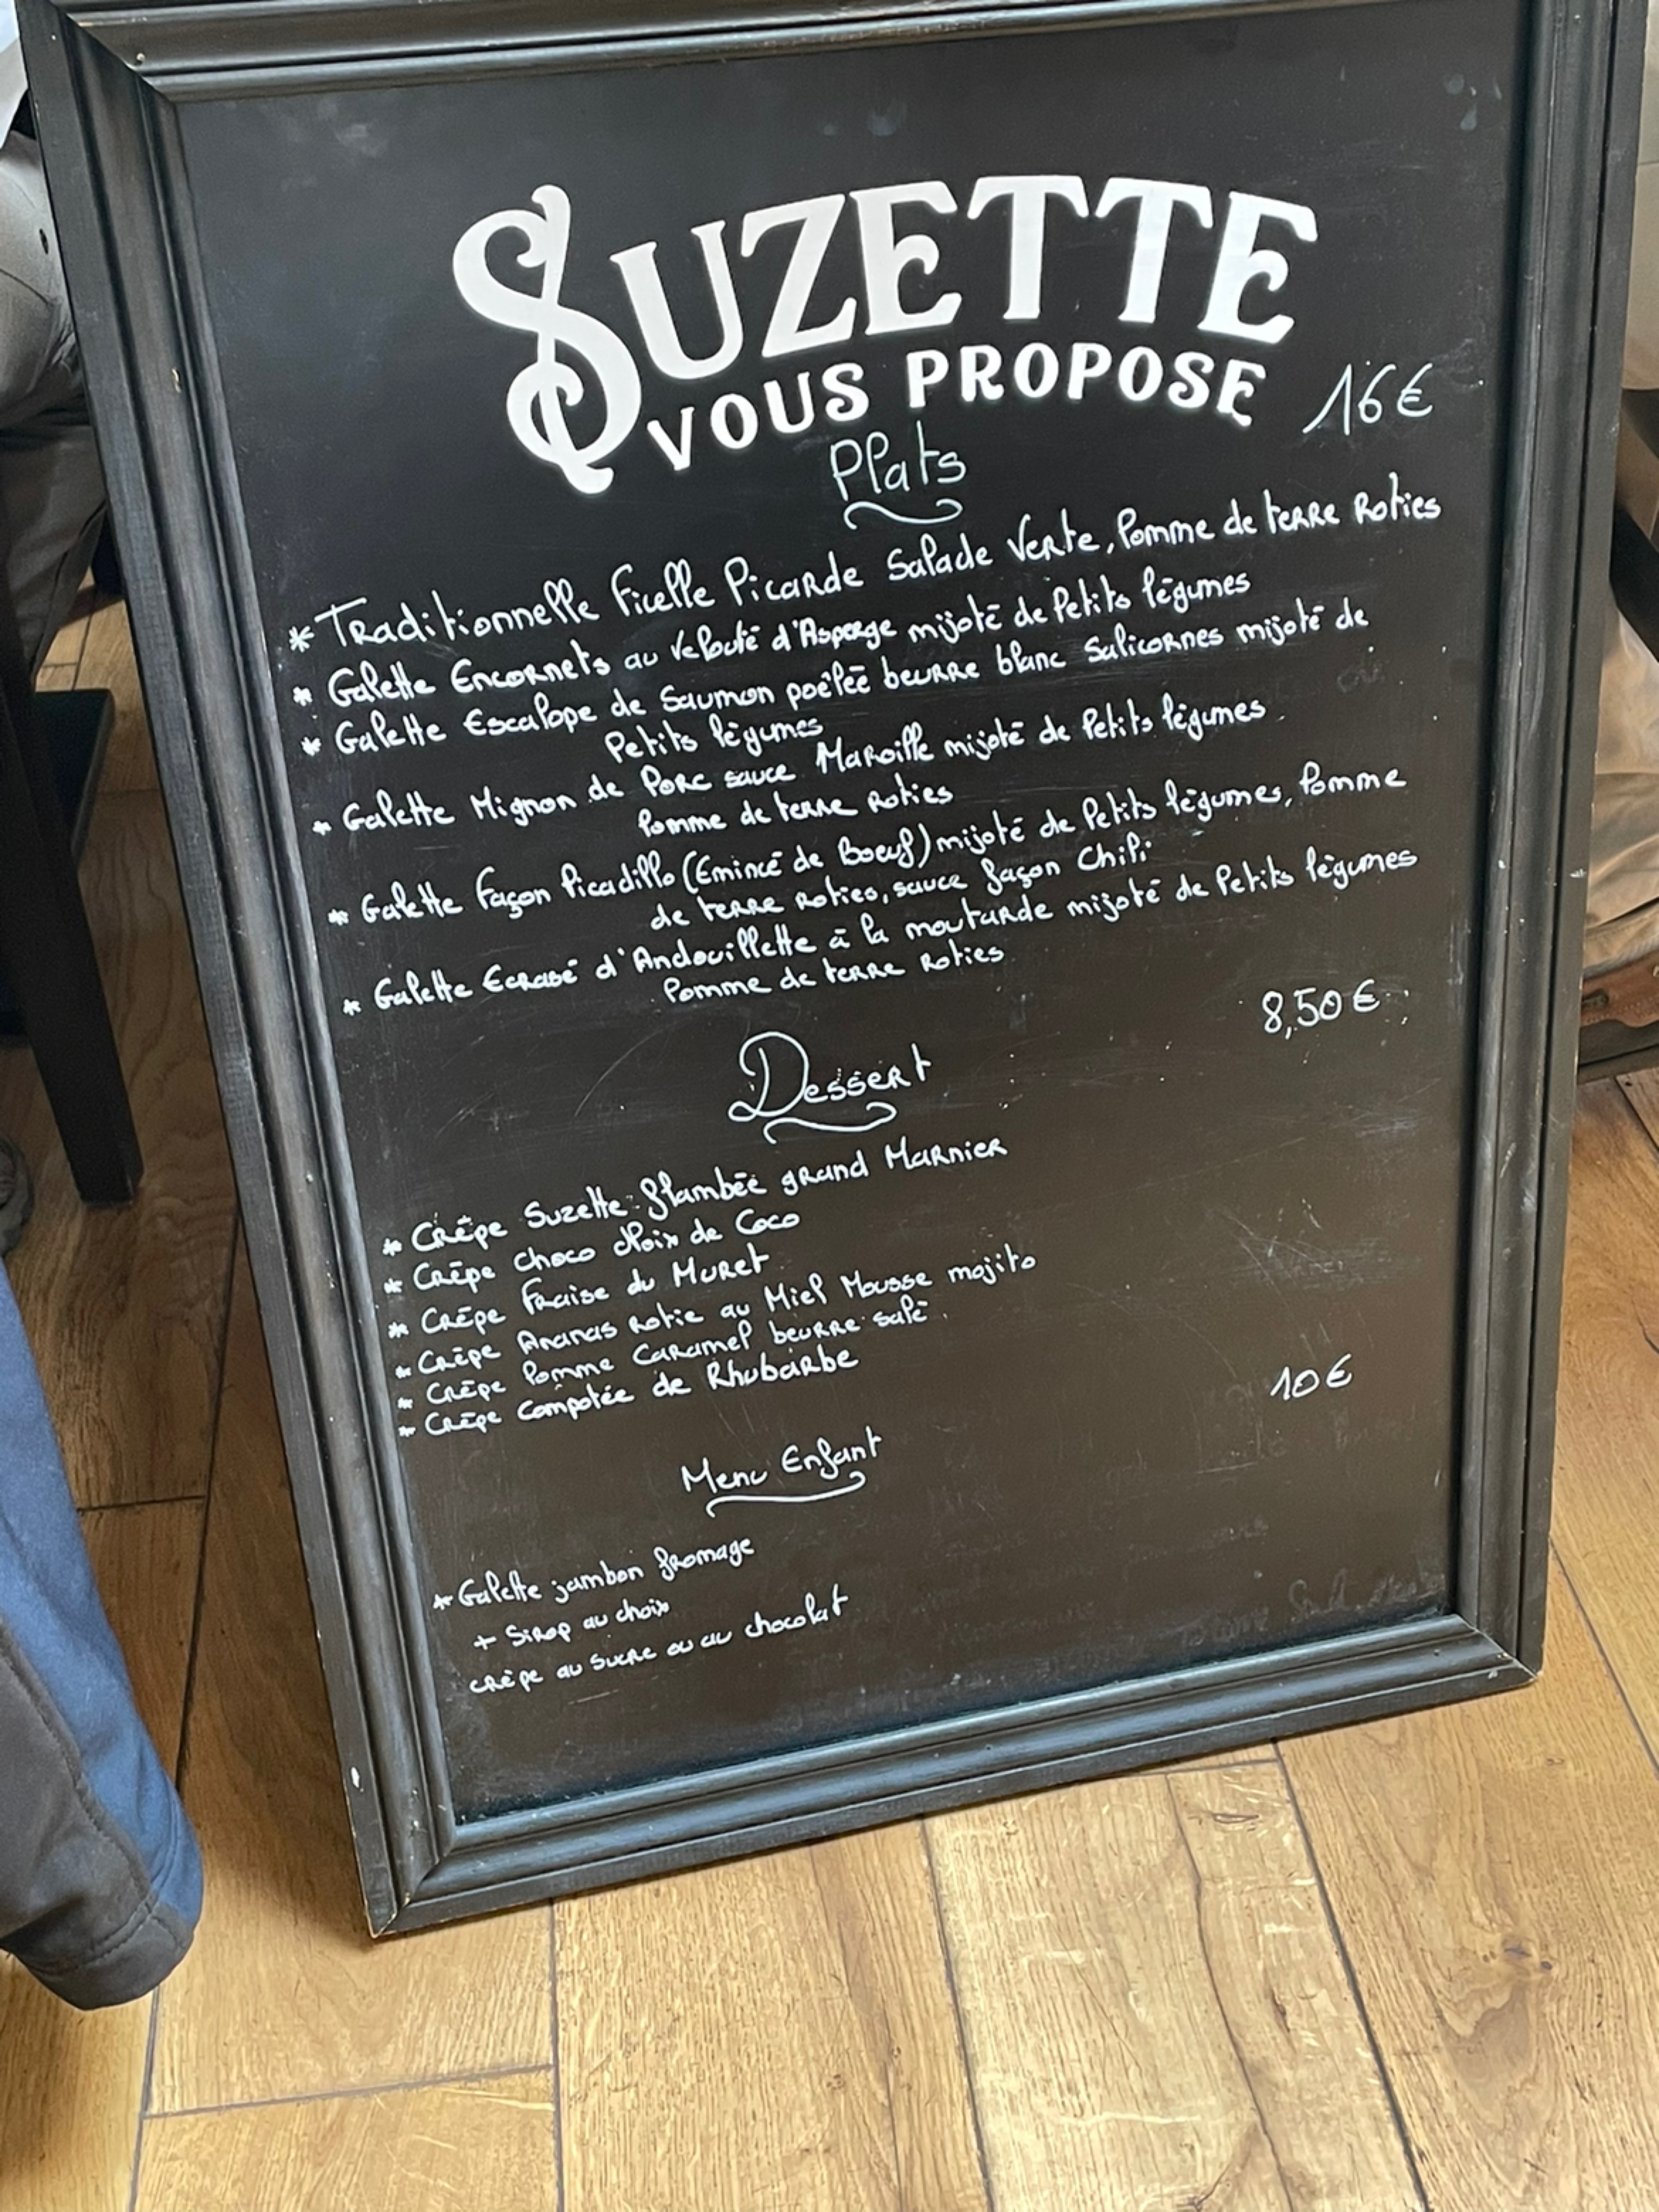 SUZETTE
VOUS PROPOSE
16€
Plats
* Traditionnelle Ficelle Picarde Salade Verte, Pomme de terre Roties
* Galette Encornets au Velouté d'Asperge mijoté de Petits légumes
* Galette Escalope de Saumon poêlée beurre blanc Salicornes mijoté de
Petits légumes
* Galette Mignon de Porc sauce Maroille mijoté de Petits légumes
Pomme de terre Roties
* Galette Façon Picadillo (Emincé de Boeuf) mijoté de Petits légumes, Pomme
de terre Roties, sauce façon Chili
* Galette Ecrasé d'Andouillette à la moutarde mijoté de Petits légumes
Pomme de terre Roties
8,50€
Dessert
* Crêpe Suzette flambée grand Marnier
* Crêpe choco Noix de Coco
* Crêpe Fraise du Muret
* Crêpe Ananas Rotie au Miel Mousse mojito
* Crêpe Pomme Caramel beurre salé
* Crêpe Compotée de Rhubarbe
10€
Menu Enfant
* Galette jambon fromage
+ Sirop au choix
crêpe au Sucre ou au chocolat